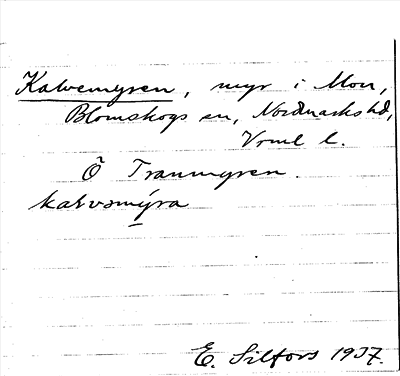 Kalvemyren, myr i Mon,
Blomskogs sn, Nordmarks hd,
Vrml l.
Ö Tranmyren.
kalvəmýra
E. Silfors 1937.